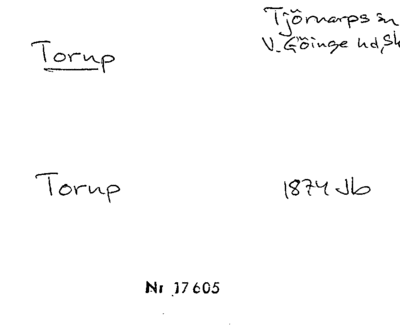 Torup
Tjörnarps sn
V. Göinge hd, Sk
Torup
1874 Jb
Nr 17605